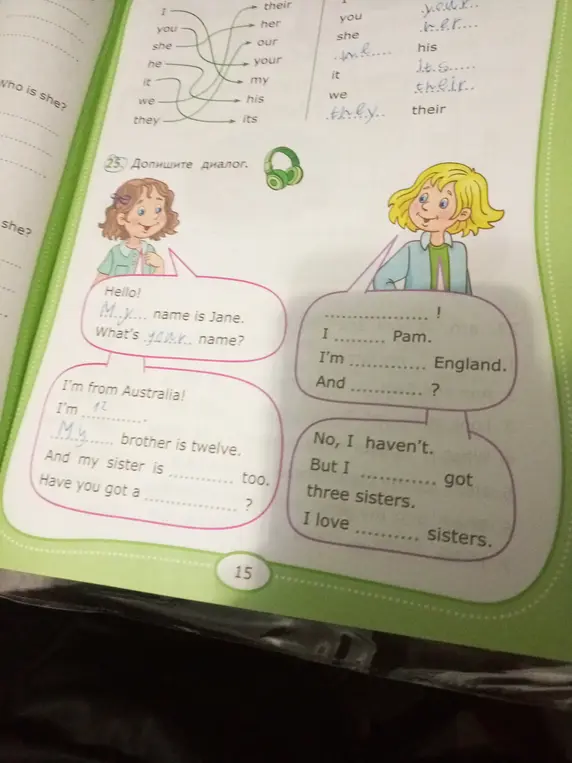 Who is she?
she?
I
you
she
he
it
we
they
their
her
our
your
my
his
its
you your
she her
he his
it its
we their
they their
23. Допишите диалог.
Hello!
My name is Jane.
What's your name?
.................... !
I ......... Pam.
I'm ............. England.
And ............ ?
I'm from Australia!
I'm 12 .
My brother is twelve.
And my sister is ............ too.
Have you got a ................. ?
No, I haven't.
But I ............ got
three sisters.
I love .......... sisters.
15